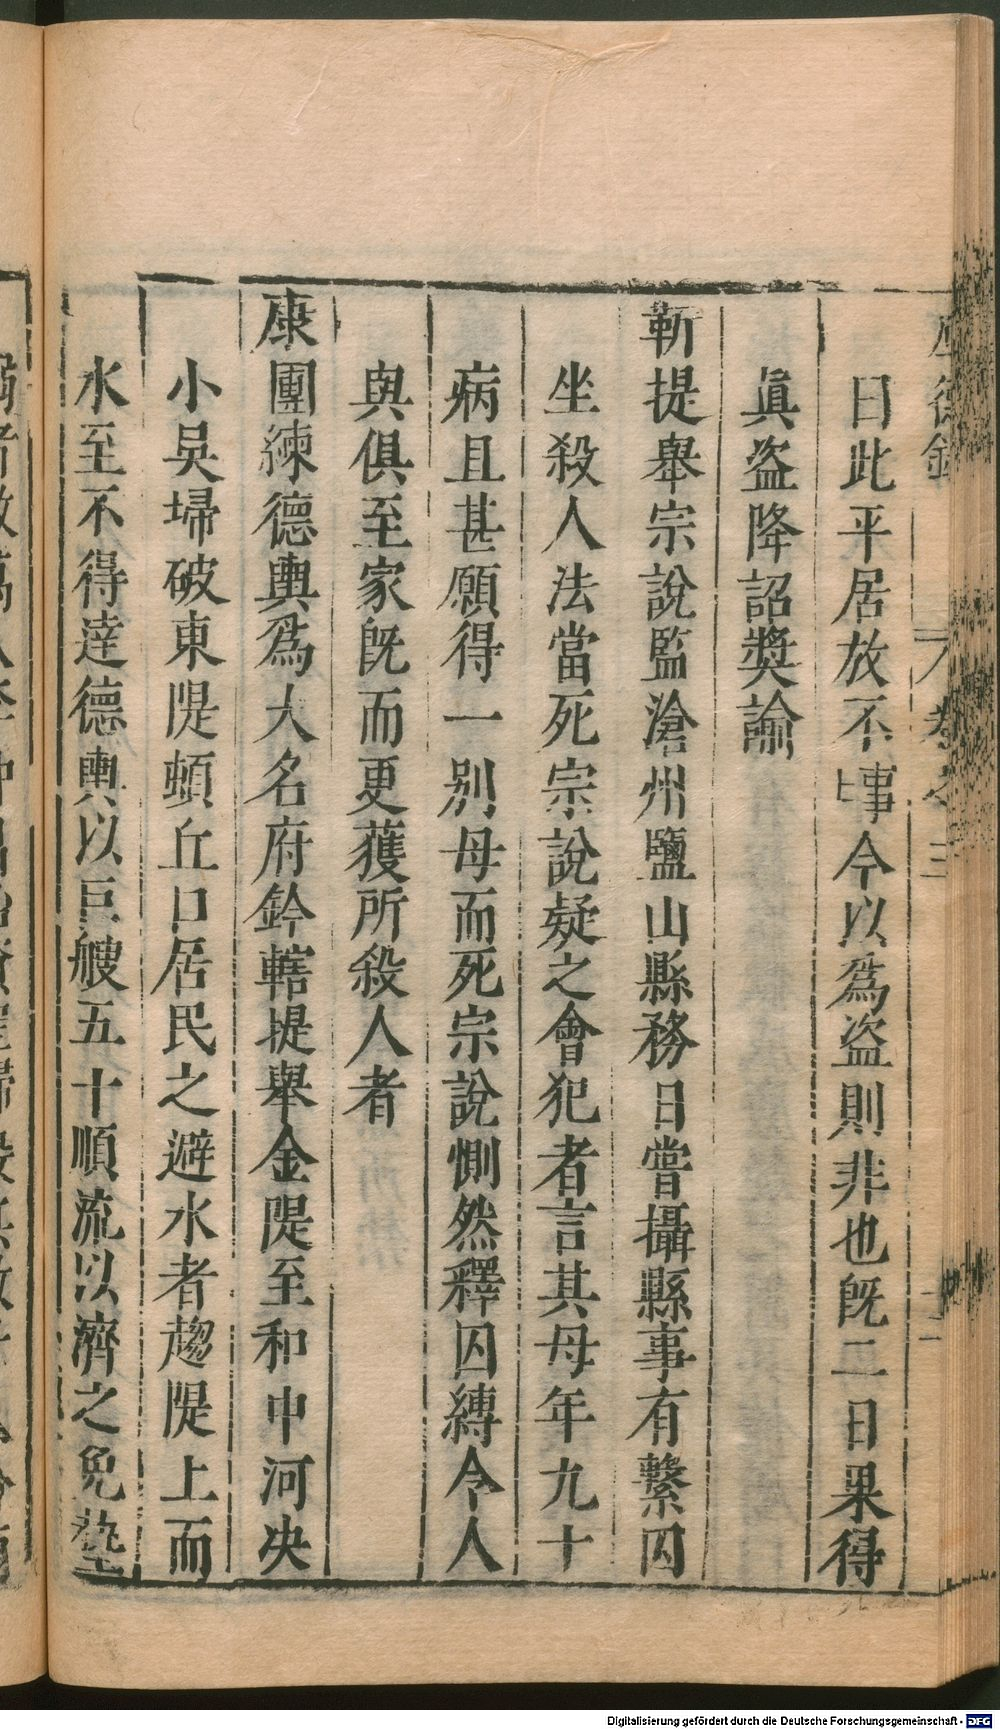 德錄 卷之三 二
曰此平居放不事今以爲盗則非也旣二日果得
眞盗降詔奬諭
靳提舉宗說監滄州鹽山縣務日嘗攝縣事有繫囚
坐殺人法當死宗說疑之會犯者言其母年九十
病且甚願得一別母而死宗說惻然釋囚縛令人
與俱至家旣而更獲所殺人者
康團練德輿爲大名府鈐轄提舉金隄至和中河決
小吳埽破東隄頓丘口居民之避水者趨隄上而
水至不得達德輿以巨艘五十順流以濟之免墊
Digitalisierung gefördert durch die Deutsche Forschungsgemeinschaft - DFG